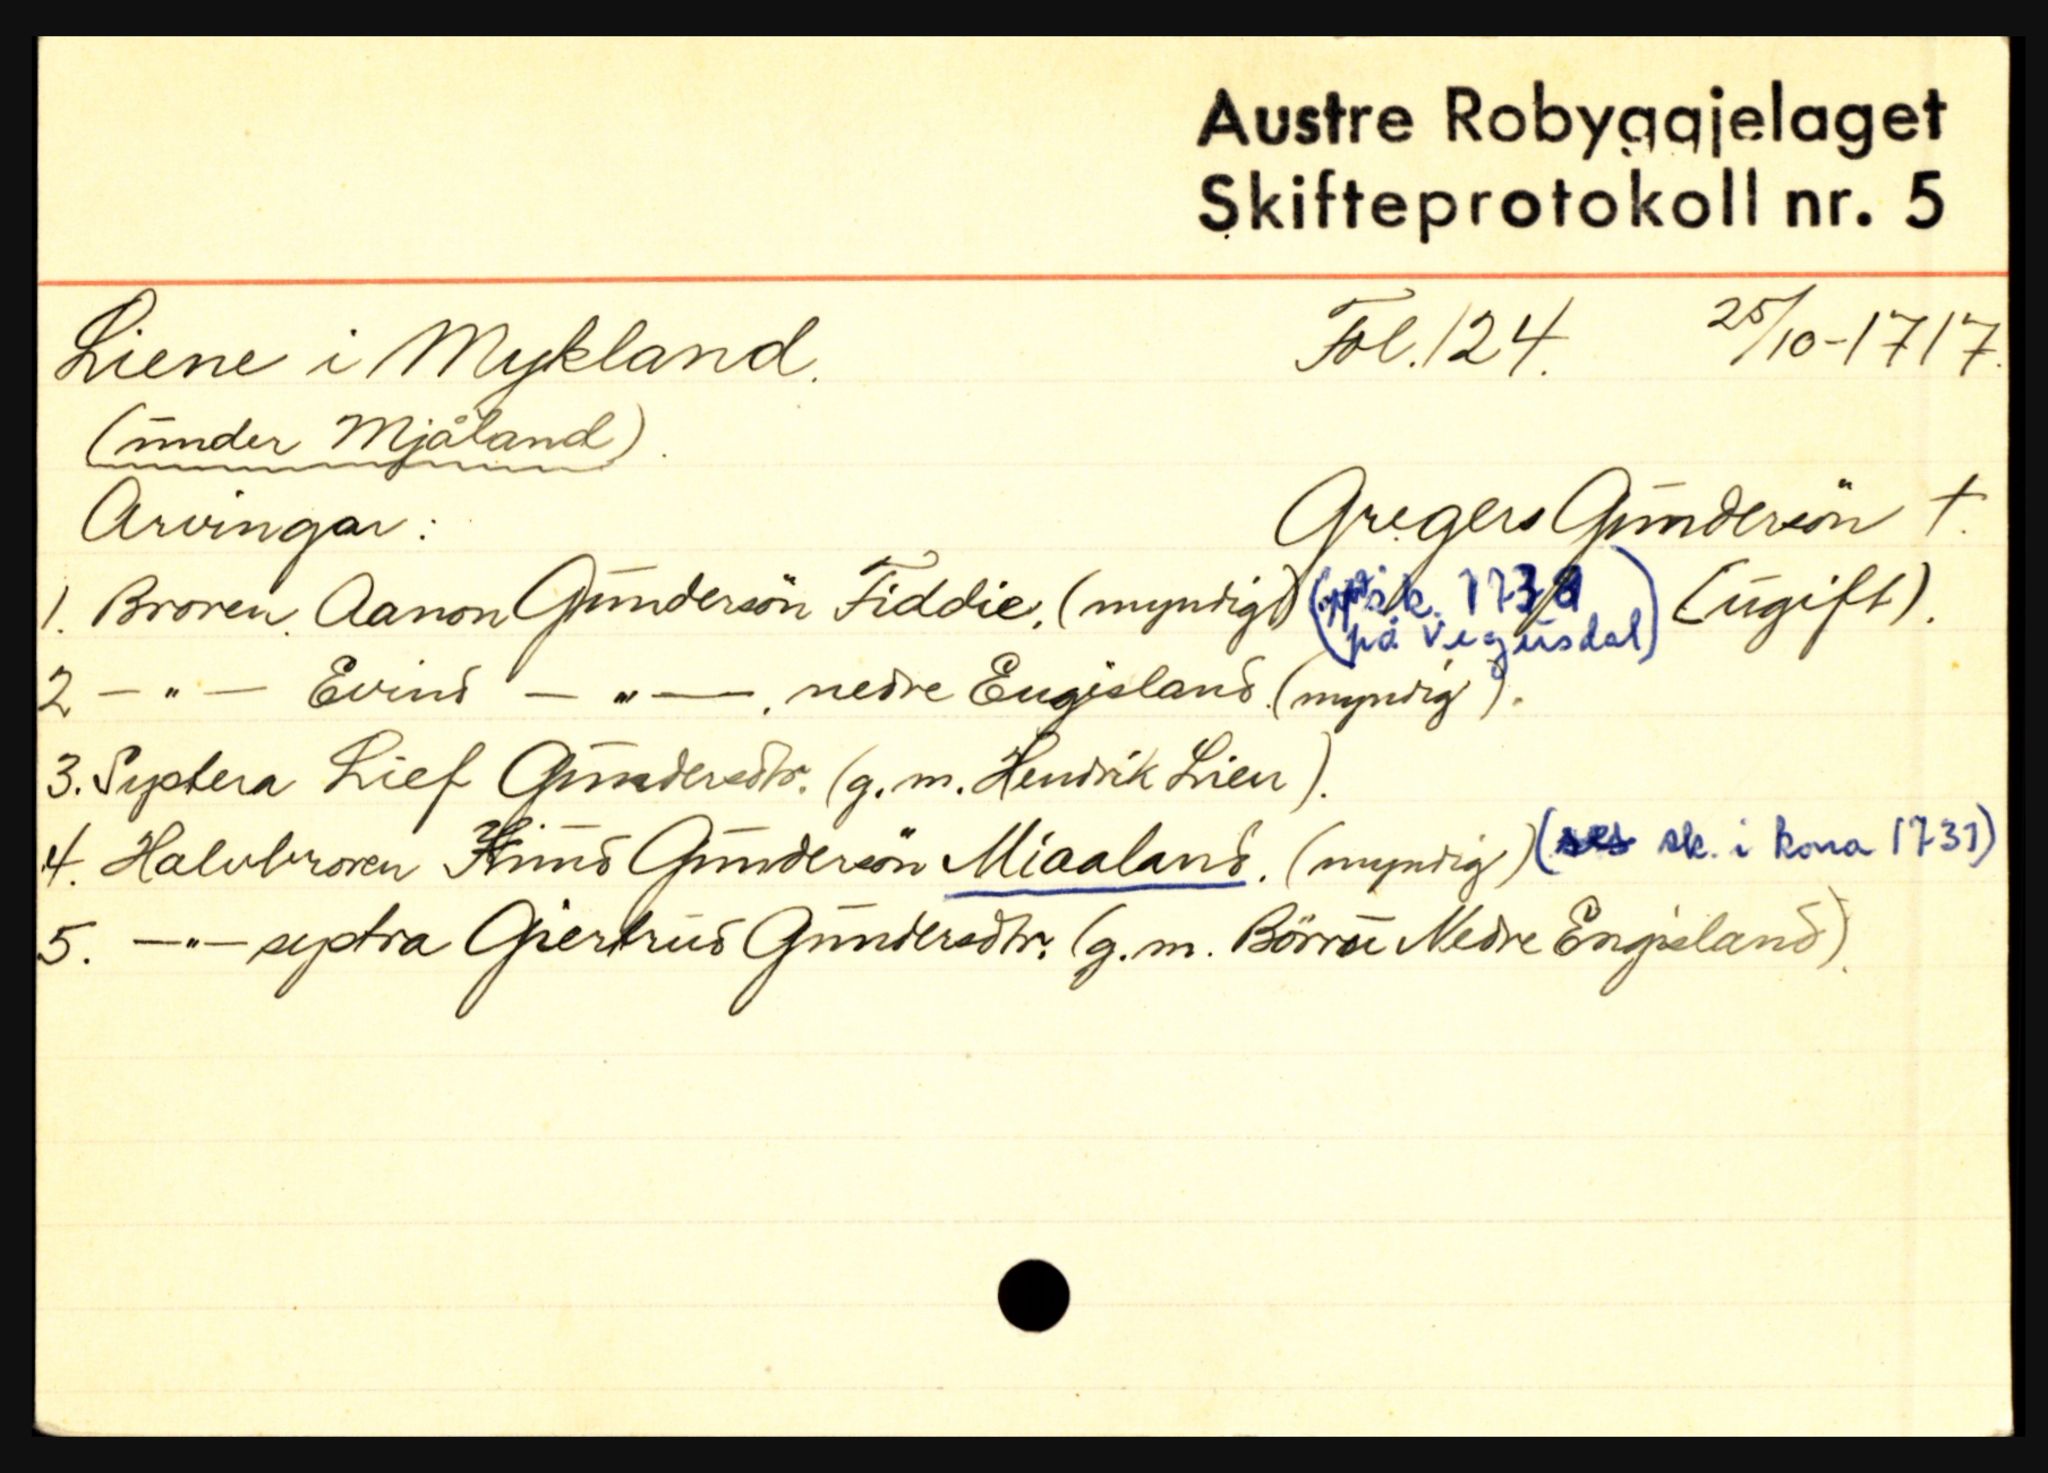 Austre Robyggjelaget
Skifteprotokoll nr. 5
Liene i Mykland. Fol. 124. 25/10-1717.
(under Mjåland).
Arvingar: Gregers Gundersön †.
1. Broren Aanon Gundersön Fiddie. (myndig) (sk. 1730 (ugift).
på Vegusdal)
2 — " — Evind — " — . nedre Engisland. (myndig).
3. Systera Lief Gundersdtr. (g. m. Hendrik Lien).
4. Halvbroren Knud Gundersön Miaaland. (myndig) (sk. i kona 1731)
5. — " — systra Giertrud Gundersdtr. (g. m. Börru Nedre Engisland).